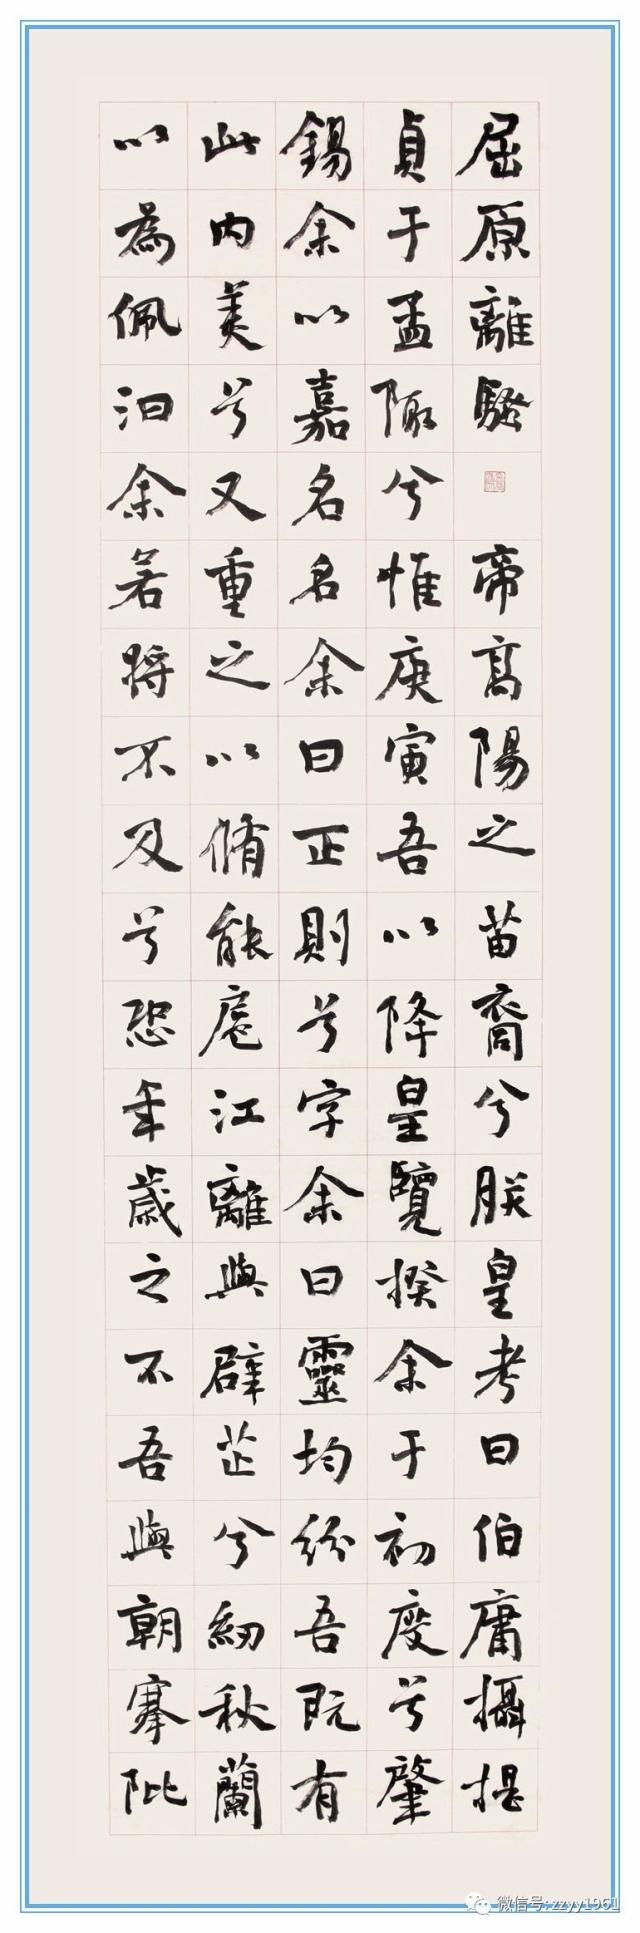 屈原離騷帝高陽之苗裔兮朕皇考曰伯庸攝提
貞于孟陬兮惟庚寅吾以降皇覽揆余于初度兮肇
錫余以嘉名名余曰正則兮字余曰靈均紛吾既有
此內美兮又重之以脩能扈江離與辟芷兮紉秋蘭
以為佩汩余若將不及兮恐年歲之不吾與朝搴阰
微信号:zzyy1961